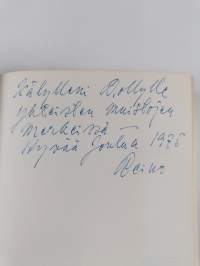 Kälylleni Dollylle
yhteisten muistojen
merkeissä
Hyvää Joulua 1976
Reino